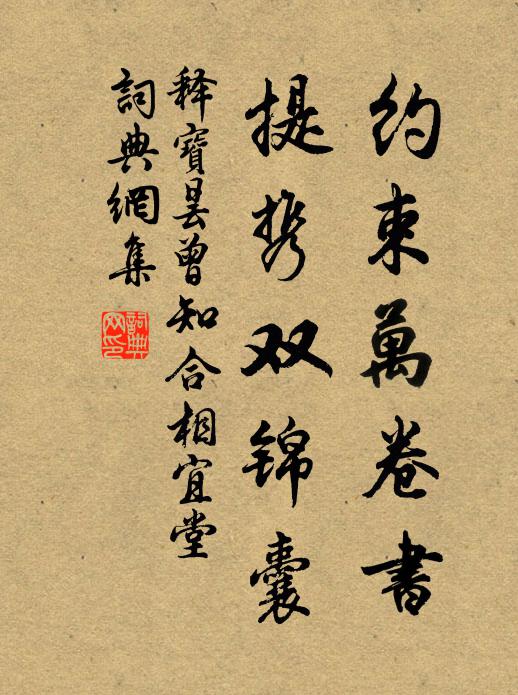 约束萬卷書
提携双锦囊
释寶昙曾知合相宜堂
詞典網集
詞典网印